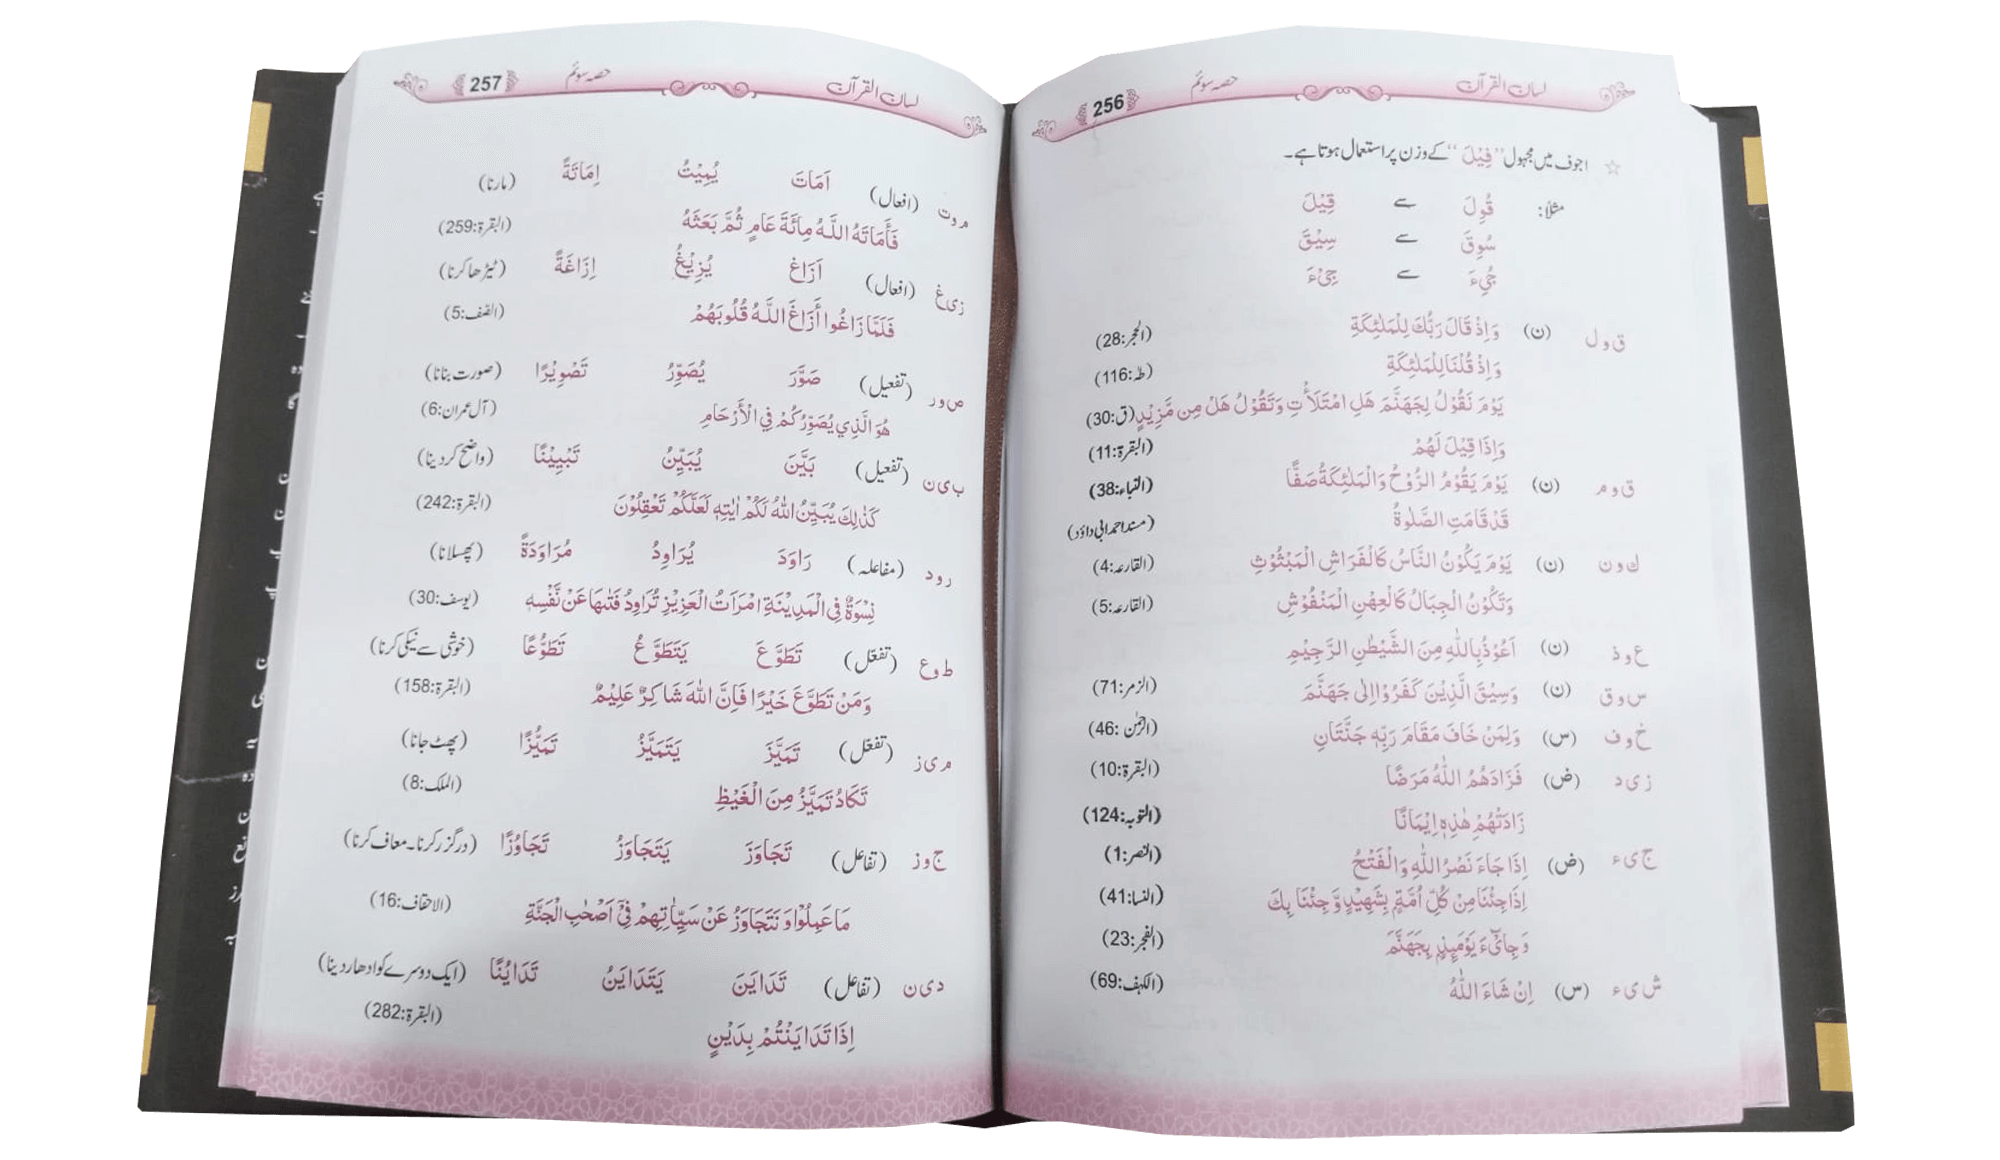 لسان القرآن حصہ سوئم 256
☆ اجوف میں مجہول "فِيْلَ" کے وزن پر استعمال ہوتا ہے۔
مثلاً: قُوِلَ سے قِيْلَ
سُوِقَ سے سِيْقَ
جُيِءَ سے جِيْءَ
ق و ل (ن) وَاِذْ قَالَ رَبُّكَ لِلْمَلٰئِكَةِ (الحجر:28)
وَاِذْ قُلْنَا لِلْمَلٰئِكَةِ (طه:116)
يَوْمَ نَقُوْلُ لِجَهَنَّمَ هَلِ امْتَلَأْتِ وَتَقُوْلُ هَلْ مِن مَّزِيْدٍ (ق:30)
وَاِذَا قِيْلَ لَهُمْ (البقرة:11)
ق و م (ن) يَوْمَ يَقُوْمُ الرُّوْحُ وَالْمَلٰئِكَةُ صَفًّا (النباء:38)
قَدْ قَامَتِ الصَّلٰوةُ (مسند احمد ابی داؤد)
ك و ن (ن) يَوْمَ يَكُوْنُ النَّاسُ كَالْفَرَاشِ الْمَبْثُوْثِ (القارعہ:4)
وَتَكُوْنُ الْجِبَالُ كَالْعِهْنِ الْمَنْفُوْشِ (القارعہ:5)
ع و ذ (ن) اَعُوْذُ بِاللّٰهِ مِنَ الشَّيْطٰنِ الرَّجِيْمِ
س و ق (ن) وَسِيْقَ الَّذِيْنَ كَفَرُوْا اِلٰى جَهَنَّمَ (الزمر:71)
خ و ف (س) وَلِمَنْ خَافَ مَقَامَ رَبِّهٖ جَنَّتَانِ (الرحمٰن:46)
ز ي د (ض) فَزَادَهُمُ اللّٰهُ مَرَضًا (البقرة:10)
زَادَتْهُمْ هٰذِهٖ اِيْمَانًا (التوبہ:124)
ج ي ء (ض) اِذَا جَاءَ نَصْرُ اللّٰهِ وَالْفَتْحُ (النصر:1)
اِذَا جِئْنَا مِنْ كُلِّ اُمَّةٍ بِشَهِيْدٍ وَّجِئْنَا بِكَ (النسا:41)
وَجِايْٓءَ يَوْمَئِذٍ بِجَهَنَّمَ (الفجر:23)
ش ي ء (س) اِنْ شَاءَ اللّٰهُ (الكهف:69)
لسان القرآن حصہ سوئم 257
م و ت (افعال) اَمَاتَ يُمِيْتُ اِمَاتَةً (مارنا)
فَأَمَاتَهُ اللَّهُ مِائَةَ عَامٍ ثُمَّ بَعَثَهُ (البقرة:259)
ز ي غ (افعال) اَزَاغ يُزِيْغُ اِزَاغَةً (ٹیڑھا کرنا)
فَلَمَّا زَاغُوا أَزَاغَ اللَّهُ قُلُوبَهُمْ (الصّف:5)
ص و ر (تفعیل) صَوَّرَ يُصَوِّرُ تَصْوِيْرًا (صورت بنانا)
هُوَ الَّذِي يُصَوِّرُكُمْ فِي الْأَرْحَامِ (آل عمران:6)
ب ي ن (تفعیل) بَيَّنَ يُبَيِّنُ تَبْيِيْنًا (واضح کر دینا)
كَذٰلِكَ يُبَيِّنُ اللّٰهُ لَكُمْ اٰيٰتِهٖ لَعَلَّكُمْ تَعْقِلُوْنَ (البقرة:242)
ر و د (مفاعلہ) رَاوَدَ يُرَاوِدُ مُرَاوَدَةً (پھسلانا)
نِسْوَةٌ فِي الْمَدِيْنَةِ امْرَاَتُ الْعَزِيْزِ تُرَاوِدُ فَتٰىهَا عَنْ نَّفْسِهٖ (یوسف:30)
ط و ع (تفعّل) تَطَوَّعَ يَتَطَوَّعُ تَطَوُّعًا (خوشی سے نیکی کرنا)
وَمَنْ تَطَوَّعَ خَيْرًا فَاِنَّ اللّٰهَ شَاكِرٌ عَلِيْمٌ (البقرة:158)
م ي ز (تفعّل) تَمَيَّزَ يَتَمَيَّزُ تَمَيُّزًا (پھٹ جانا)
تَكَادُ تَمَيَّزُ مِنَ الْغَيْظِ (الملک:8)
ج و ز (تفاعل) تَجَاوَزَ يَتَجَاوَزُ تَجَاوُزًا (درگزر کرنا۔ معاف کرنا)
مَا عَمِلُوْا وَنَتَجَاوَزُ عَنْ سَيِّاٰتِهِمْ فِيْٓ اَصْحٰبِ الْجَنَّةِ (الاحقاف:16)
د ي ن (تفاعل) تَدَايَنَ يَتَدَايَنُ تَدَايُنًا (ایک دوسرے کو ادھار دینا)
اِذَا تَدَايَنْتُمْ بِدَيْنٍ (البقرة:282)